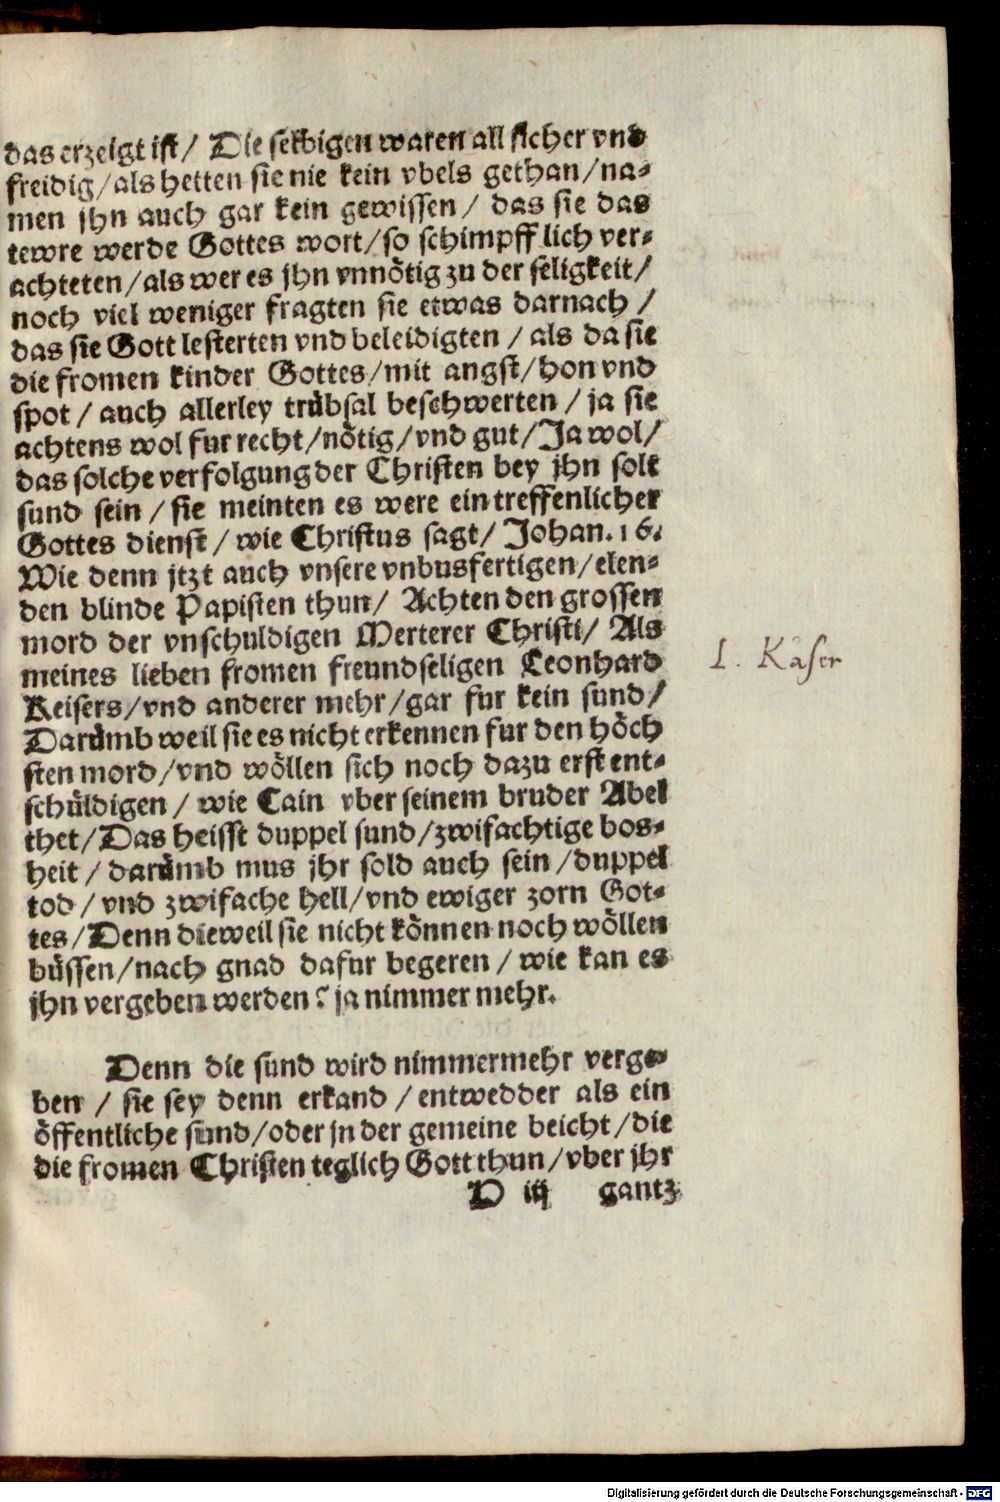 das erzeigt ist/ Die selbigen waren all sicher vnd
freidig/als hetten sie nie kein vbels gethan/na-
men jhn auch gar kein gewissen/ das sie das
tewre werde Gottes wort/so schimpfflich ver-
achteten/als wer es jhn vnnötig zu der seligkeit/
noch viel weniger fragten sie etwas darnach/
das sie Gott lesterten vnd beleidigten/als da sie
die fromen kinder Gottes/mit angst/hon vnd
spot/auch allerley trübsal beschwerten/ja sie
achtens wol fur recht/nötig/vnd gut/Ja wol/
das solche verfolgung der Christen bey jhn solt
sund sein/sie meinten es were ein treffenlicher
Gottes dienst/wie Christus sagt/Johan.16.
Wie denn jtzt auch vnsere vnbusfertigen/elen-
den blinde Papisten thun/ Achten den grossen
mord der vnschuldigen Merterer Christi/ Als
meines lieben fromen freundseligen Leonhard
Keisers/vnd anderer mehr/gar fur kein sund/
L. Käser
Darümb weil sie es nicht erkennen fur den höch
sten mord/vnd wöllen sich noch dazu erst ent-
schüldigen/wie Cain vber seinem bruder Abel
thet/Das heisst duppel sund/zwifachtige bos-
heit/darümb mus jhr sold auch sein/duppel
tod/vnd zwifache hell/vnd ewiger zorn Got-
tes/Denn dieweil sie nicht können noch wöllen
büssen/nach gnad dafur begeren/wie kan es
jhn vergeben werden? ja nimmer mehr.
Denn die sund wird nimmermehr verge-
ben/sie sey denn erkand/entwedder als ein
öffentliche sund/oder jn der gemeine beicht/die
die fromen Christen teglich Gott thun/vber jhr
D iij gantz
Digitalisierung gefördert durch die Deutsche Forschungsgemeinschaft - DFG